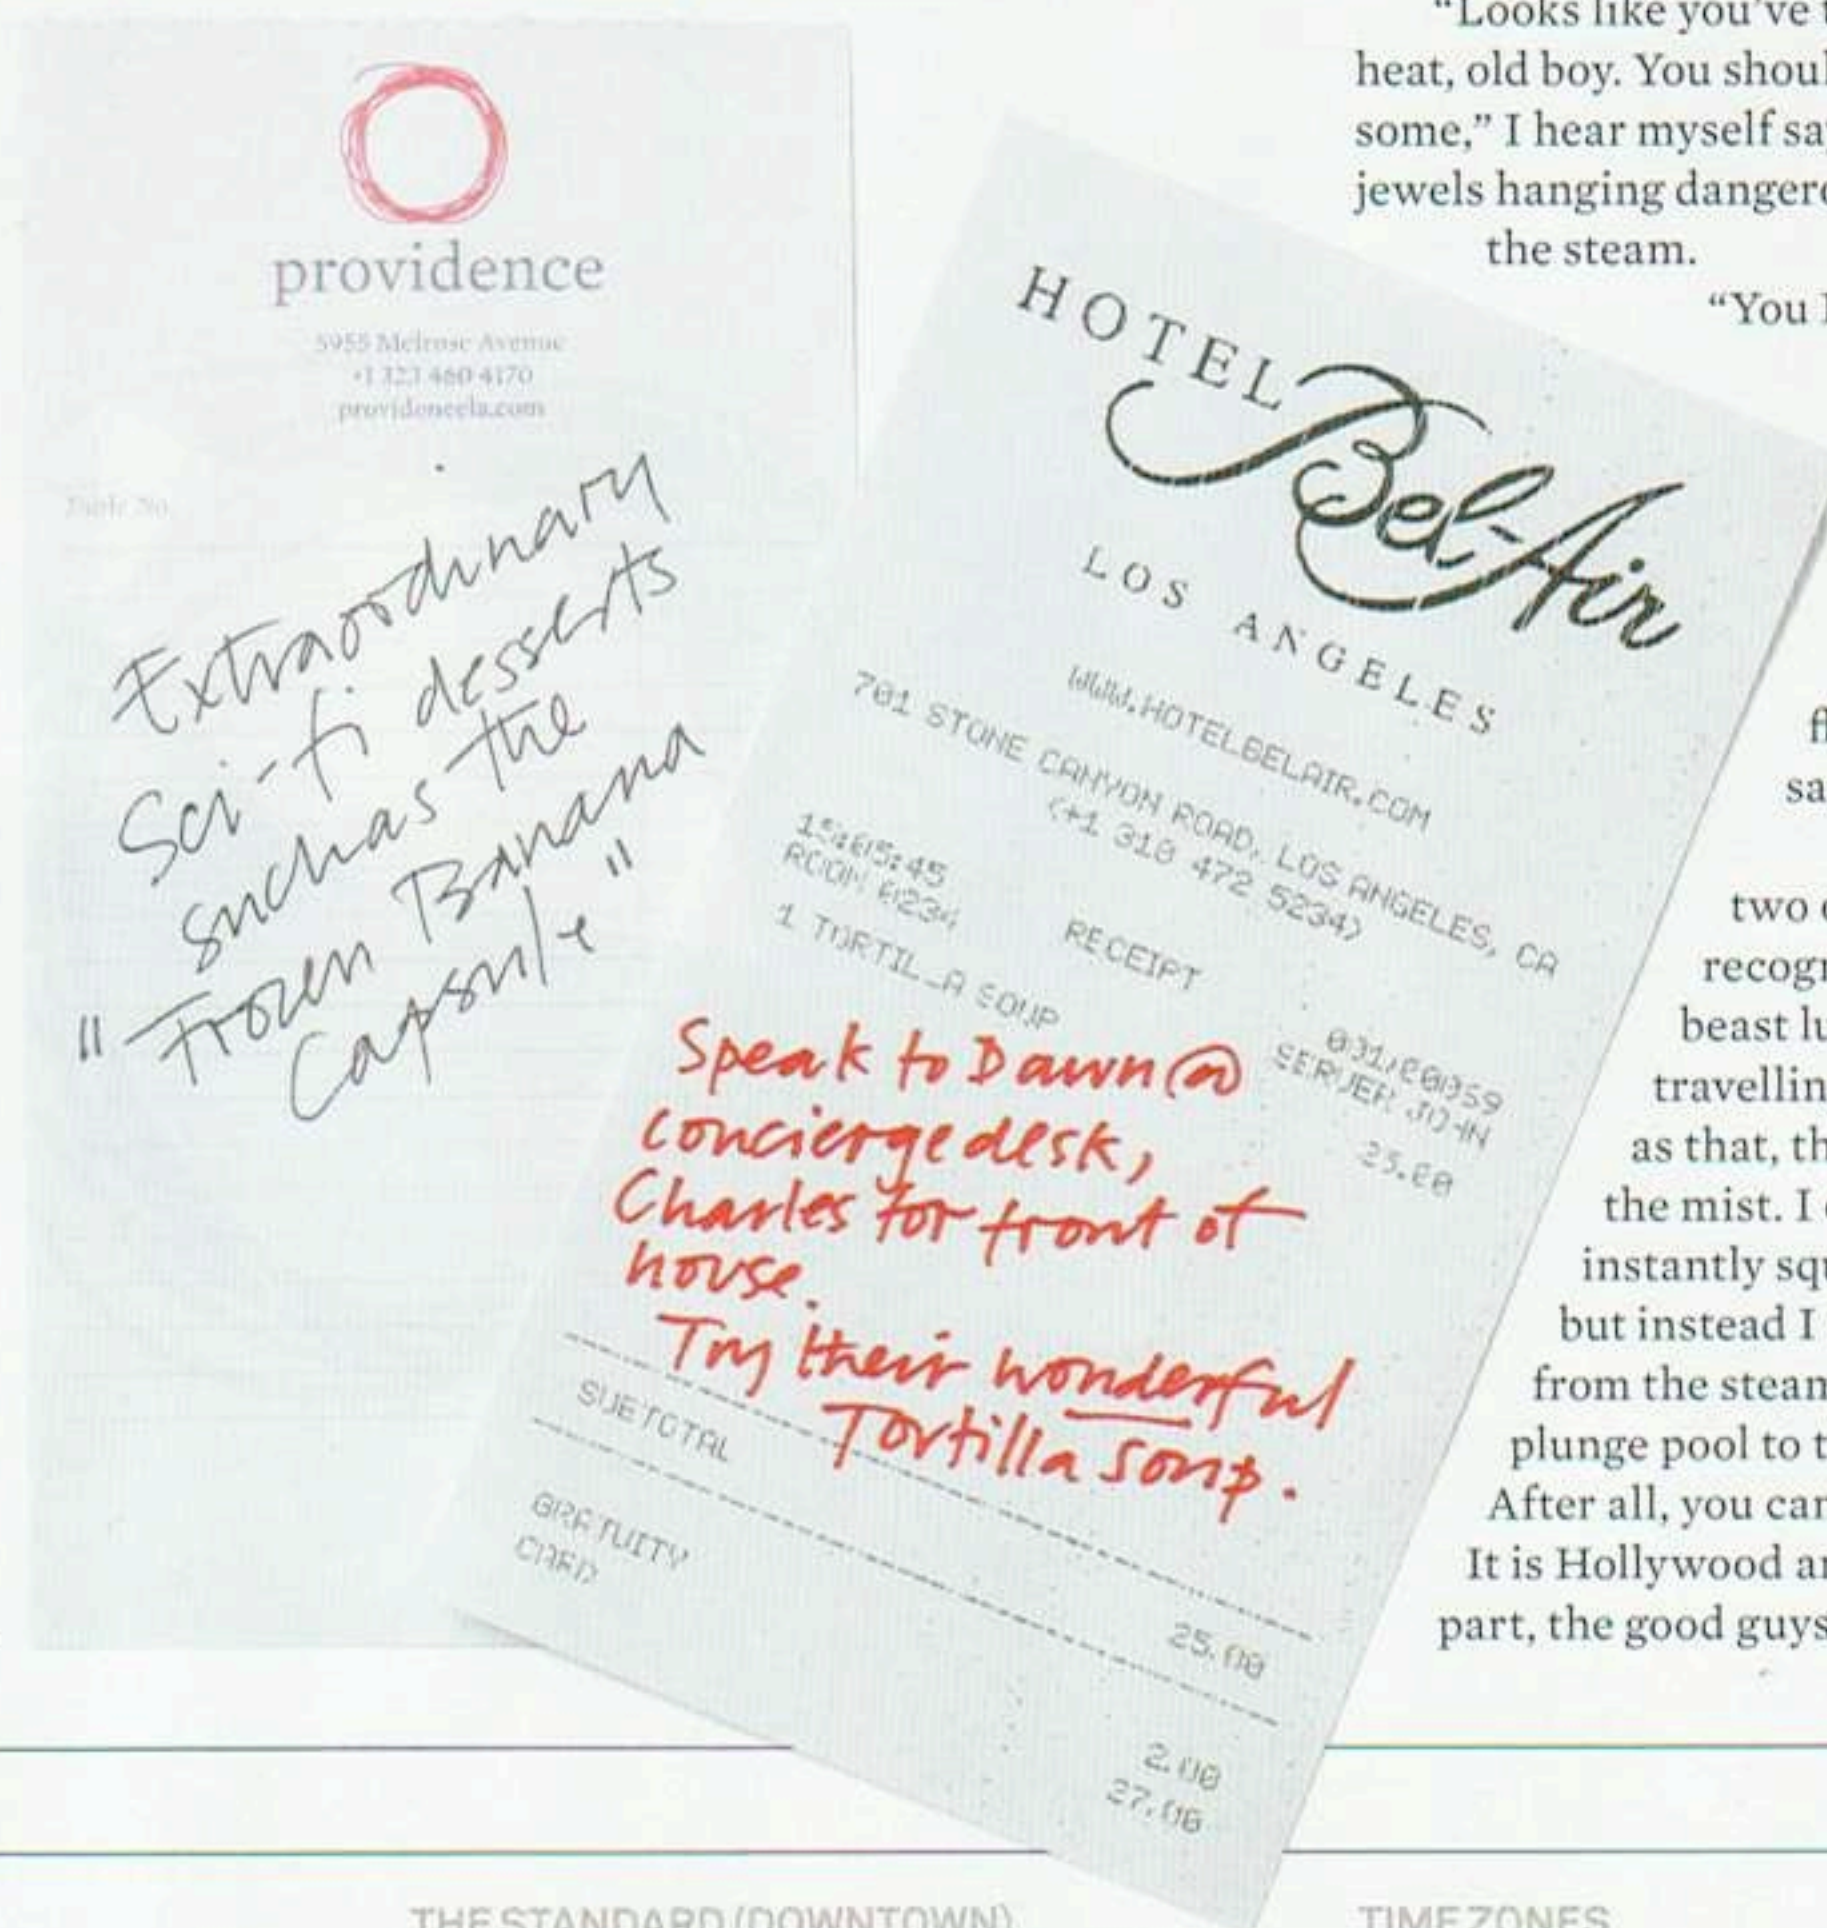 providence
5955 Melrose Avenue
+1 323 460 4170
providencela.com
Table No.
Extraordinary
Sci-fi desserts
such as the
"Frozen Banana
Capsule"
HOTEL
Bel-Air
LOS ANGELES
WWW.HOTELBELAIR.COM
701 STONE CANYON ROAD, LOS ANGELES, CA
(+1 310 472 5234)
15:05:45
RECEIPT
SERVER JOHN
1 TORTIL_A SOUP
25.00
Speak to Dawn @
concierge desk,
Charles for front of
house.
Try their wonderful
Tortilla soup.
SUBTOTAL
25.00
GRATUITY
2.00
CARD
27.00
"Looks like you've
heat, old boy. You shoul
some," I hear myself sa
jewels hanging dangero
the steam.
"You
fl
sa
two
recogn
beast lu
travellin
as that, th
the mist. I
instantly squ
but instead I
from the steam
plunge pool to t
After all, you can
It is Hollywood an
part, the good guys
THE STANDARD (DOWNTOWN)
TIME ZONES